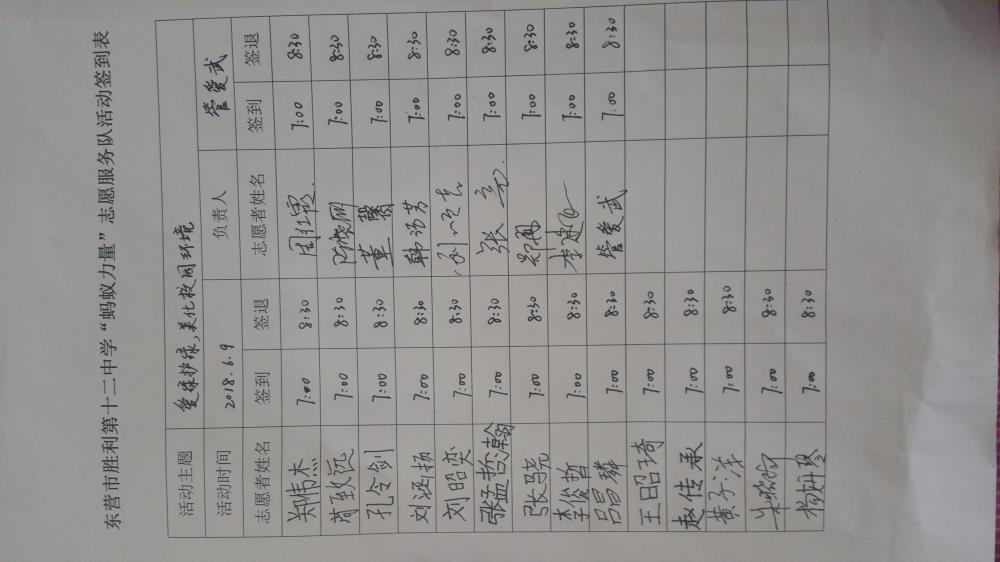 东营市胜利第十二中学“蚂蚁力量”志愿服务队活动签到表
活动主题 爱绿护绿，美化校园环境
活动时间 2018.6.9 负责人 管爱武
志愿者姓名 签到 签退 志愿者姓名 签到 签退
郑伟杰 7:00 8:30 周红霞. 7:00 8:30
苟致远 7:00 8:30 陈晓刚 7:00 8:30
孔令剑 7:00 8:30 董馨 7:00 8:30
刘涵扬 7:00 8:30 韩语芳 7:00 8:30
刘昭奕 7:00 8:30 7:00 8:30
张孟哲瀚 7:00 8:30 张亮. 7:00 8:30
张骁 7:00 8:30 7:00 8:30
李俊哲 7:00 8:30 7:00 8:30
吕昌麟 7:00 8:30 管爱武 7:00 8:30
王昭琦 7:00 8:30
赵传承 7:00 8:30
黄子洋 7:00 8:30
7:00 8:30
7:00 8:30